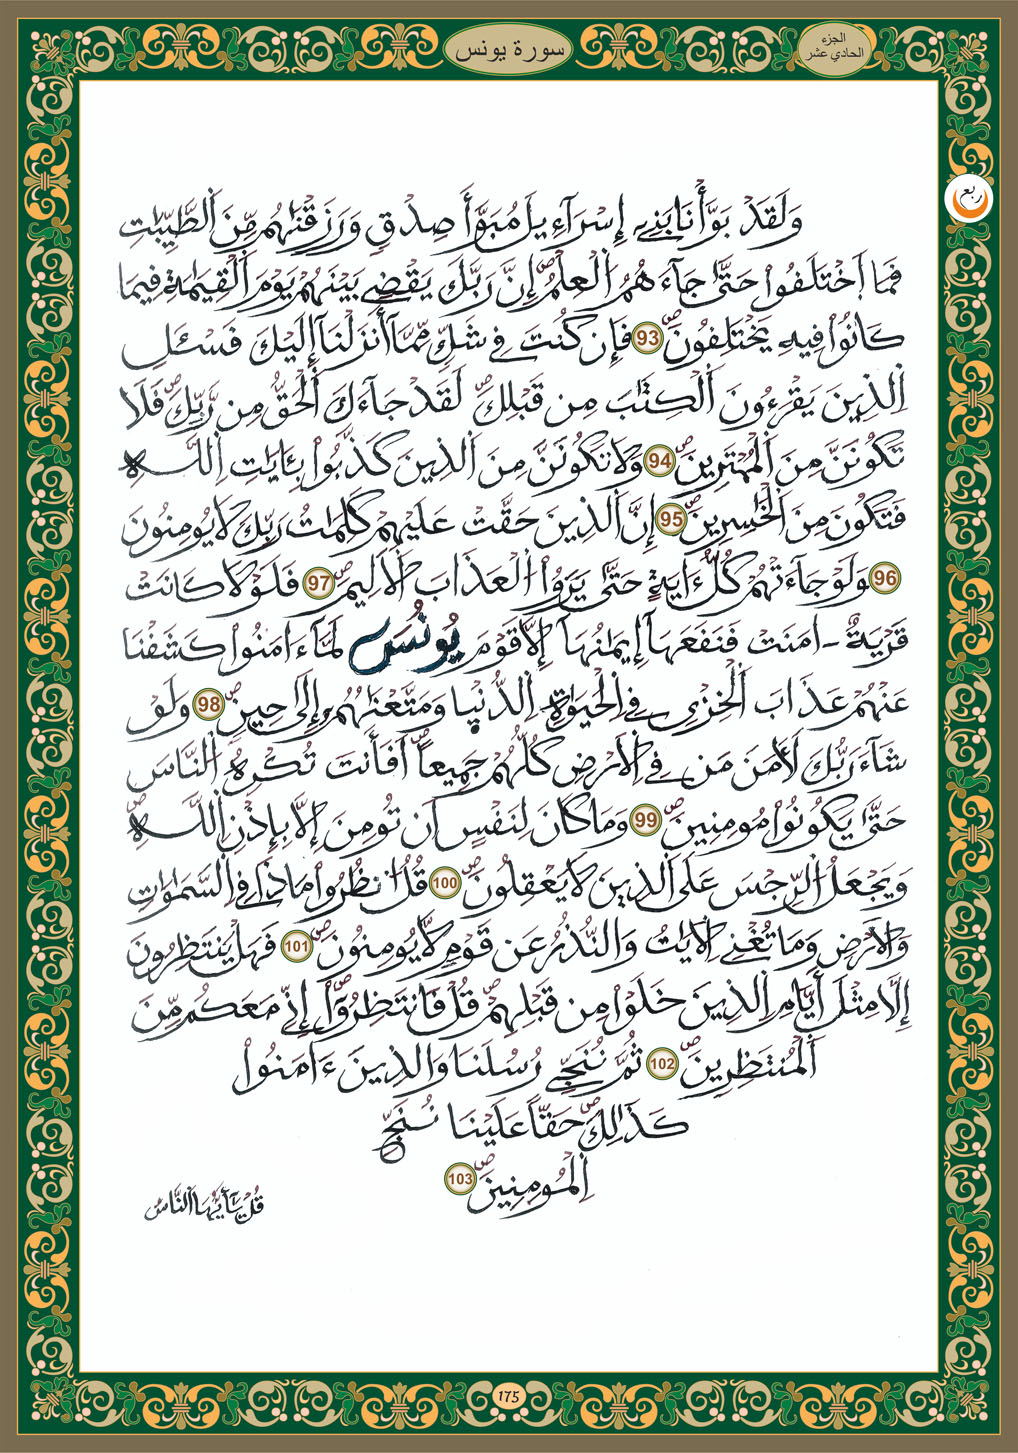 الجزء
الحادي عشر
سورة يونس
ربع
وَلَقَدْ بَوَّأْنَا بَنِے إِسْرَآءِيلَ مُبَوَّأَ صِدْقٖ وَرَزَقْنَٰهُم مِّنَ اَ۬لطَّيِّبَٰتِ
فَمَا اَ۪خْتَلَفُواْ حَتَّىٰ جَآءَهُمُ اُ۬لْعِلْمُۖ إِنَّ رَبَّكَ يَقْضِے بَيْنَهُمْ يَوْمَ اَ۬لْقِيَٰمَةِ فِيمَا
كَانُواْ فِيهِ يَخْتَلِفُونَۖ 93 فَإِن كُنتَ فِے شَكّٖ مِّمَّآ أَنزَلْنَآ إِلَيْكَ فَسْـَٔلِ
اِ۬لذِينَ يَقْرَءُونَ اَ۬لْكِتَٰبَ مِن قَبْلِكَۖ لَقَدْ جَآءَكَ اَ۬لْحَقُّ مِن رَّبِّكَۖ فَلَا
تَكُونَنَّ مِنَ اَ۬لْمُمْتَرِينَۖ 94 وَلَا تَكُونَنَّ مِنَ اَ۬لذِينَ كَذَّبُواْ بِـَٔايَٰتِ اِ۬للَّهِ
فَتَكُونَ مِنَ اَ۬لْخَٰسِرِينَۖ 95 إِنَّ اَ۬لذِينَ حَقَّتْ عَلَيْهِمْ كَلِمَٰتُ رَبِّكَ لَا يُومِنُونَ
96 وَلَوْ جَآءَتْهُمْ كُلُّ ءَايَةٍ حَتَّىٰ يَرَوُاْ اُ۬لْعَذَابَ اَ۬لَالِيمَۖ 97 فَلَوْلَا كَانَتْ
قَرْيَةٌ ـ اٰمَنَتْ فَنَفَعَهَآ إِيمَٰنُهَآ إِلَّا قَوْمَ يُونُسَ لَمَّآ ءَامَنُواْ كَشَفْنَا
عَنْهُمْ عَذَابَ اَ۬لْخِزْيِ فِے اِ۬لْحَيَوٰةِ اِ۬لدُّنْي۪ا وَمَتَّعْنَٰهُمُۥٓ إِلَىٰ حِينٖۖ 98 وَلَوْ
شَآءَ رَبُّكَ لَأٓمَنَ مَن فِے اِ۬لَارْضِ كُلُّهُمْ جَمِيعاًۖ اَفَأَنتَ تُكْرِهُ اُ۬لنَّاسَ
حَتَّىٰ يَكُونُواْ مُومِنِينَۖ 99 وَمَا كَانَ لِنَفْسٍ اَن تُومِنَ إِلَّا بِإِذْنِ اِ۬للَّهِۖ
وَيَجْعَلُ اُ۬لرِّجْسَ عَلَى اَ۬لذِينَ لَا يَعْقِلُونَۖ 100 قُلُ اُ۟نظُرُواْ مَاذَا فِے اِ۬لسَّمَٰوَٰتِ
وَالَارْضِ وَمَا تُغْنِے اِ۬لَايَٰتُ وَالنُّذُرُ عَن قَوْمٖ لَّا يُومِنُونَۖ 101 فَهَلْ يَنتَظِرُونَ
إِلَّا مِثْلَ أَيَّامِ اِ۬لذِينَ خَلَوْاْ مِن قَبْلِهِمْۖ قُلْ فَانتَظِرُوٓاْ إِنِّے مَعَكُم مِّنَ
اَ۬لْمُنتَظِرِينَۖ 102 ثُمَّ نُنَجِّے رُسُلَنَا وَالذِينَ ءَامَنُواْ
كَذَٰلِكَۖ حَقّاً عَلَيْنَا نُنَجِّ
اِ۬لْمُومِنِينَۖ 103
قُلْ يَٰٓأَيُّهَا اَ۬لنَّاسُ
175